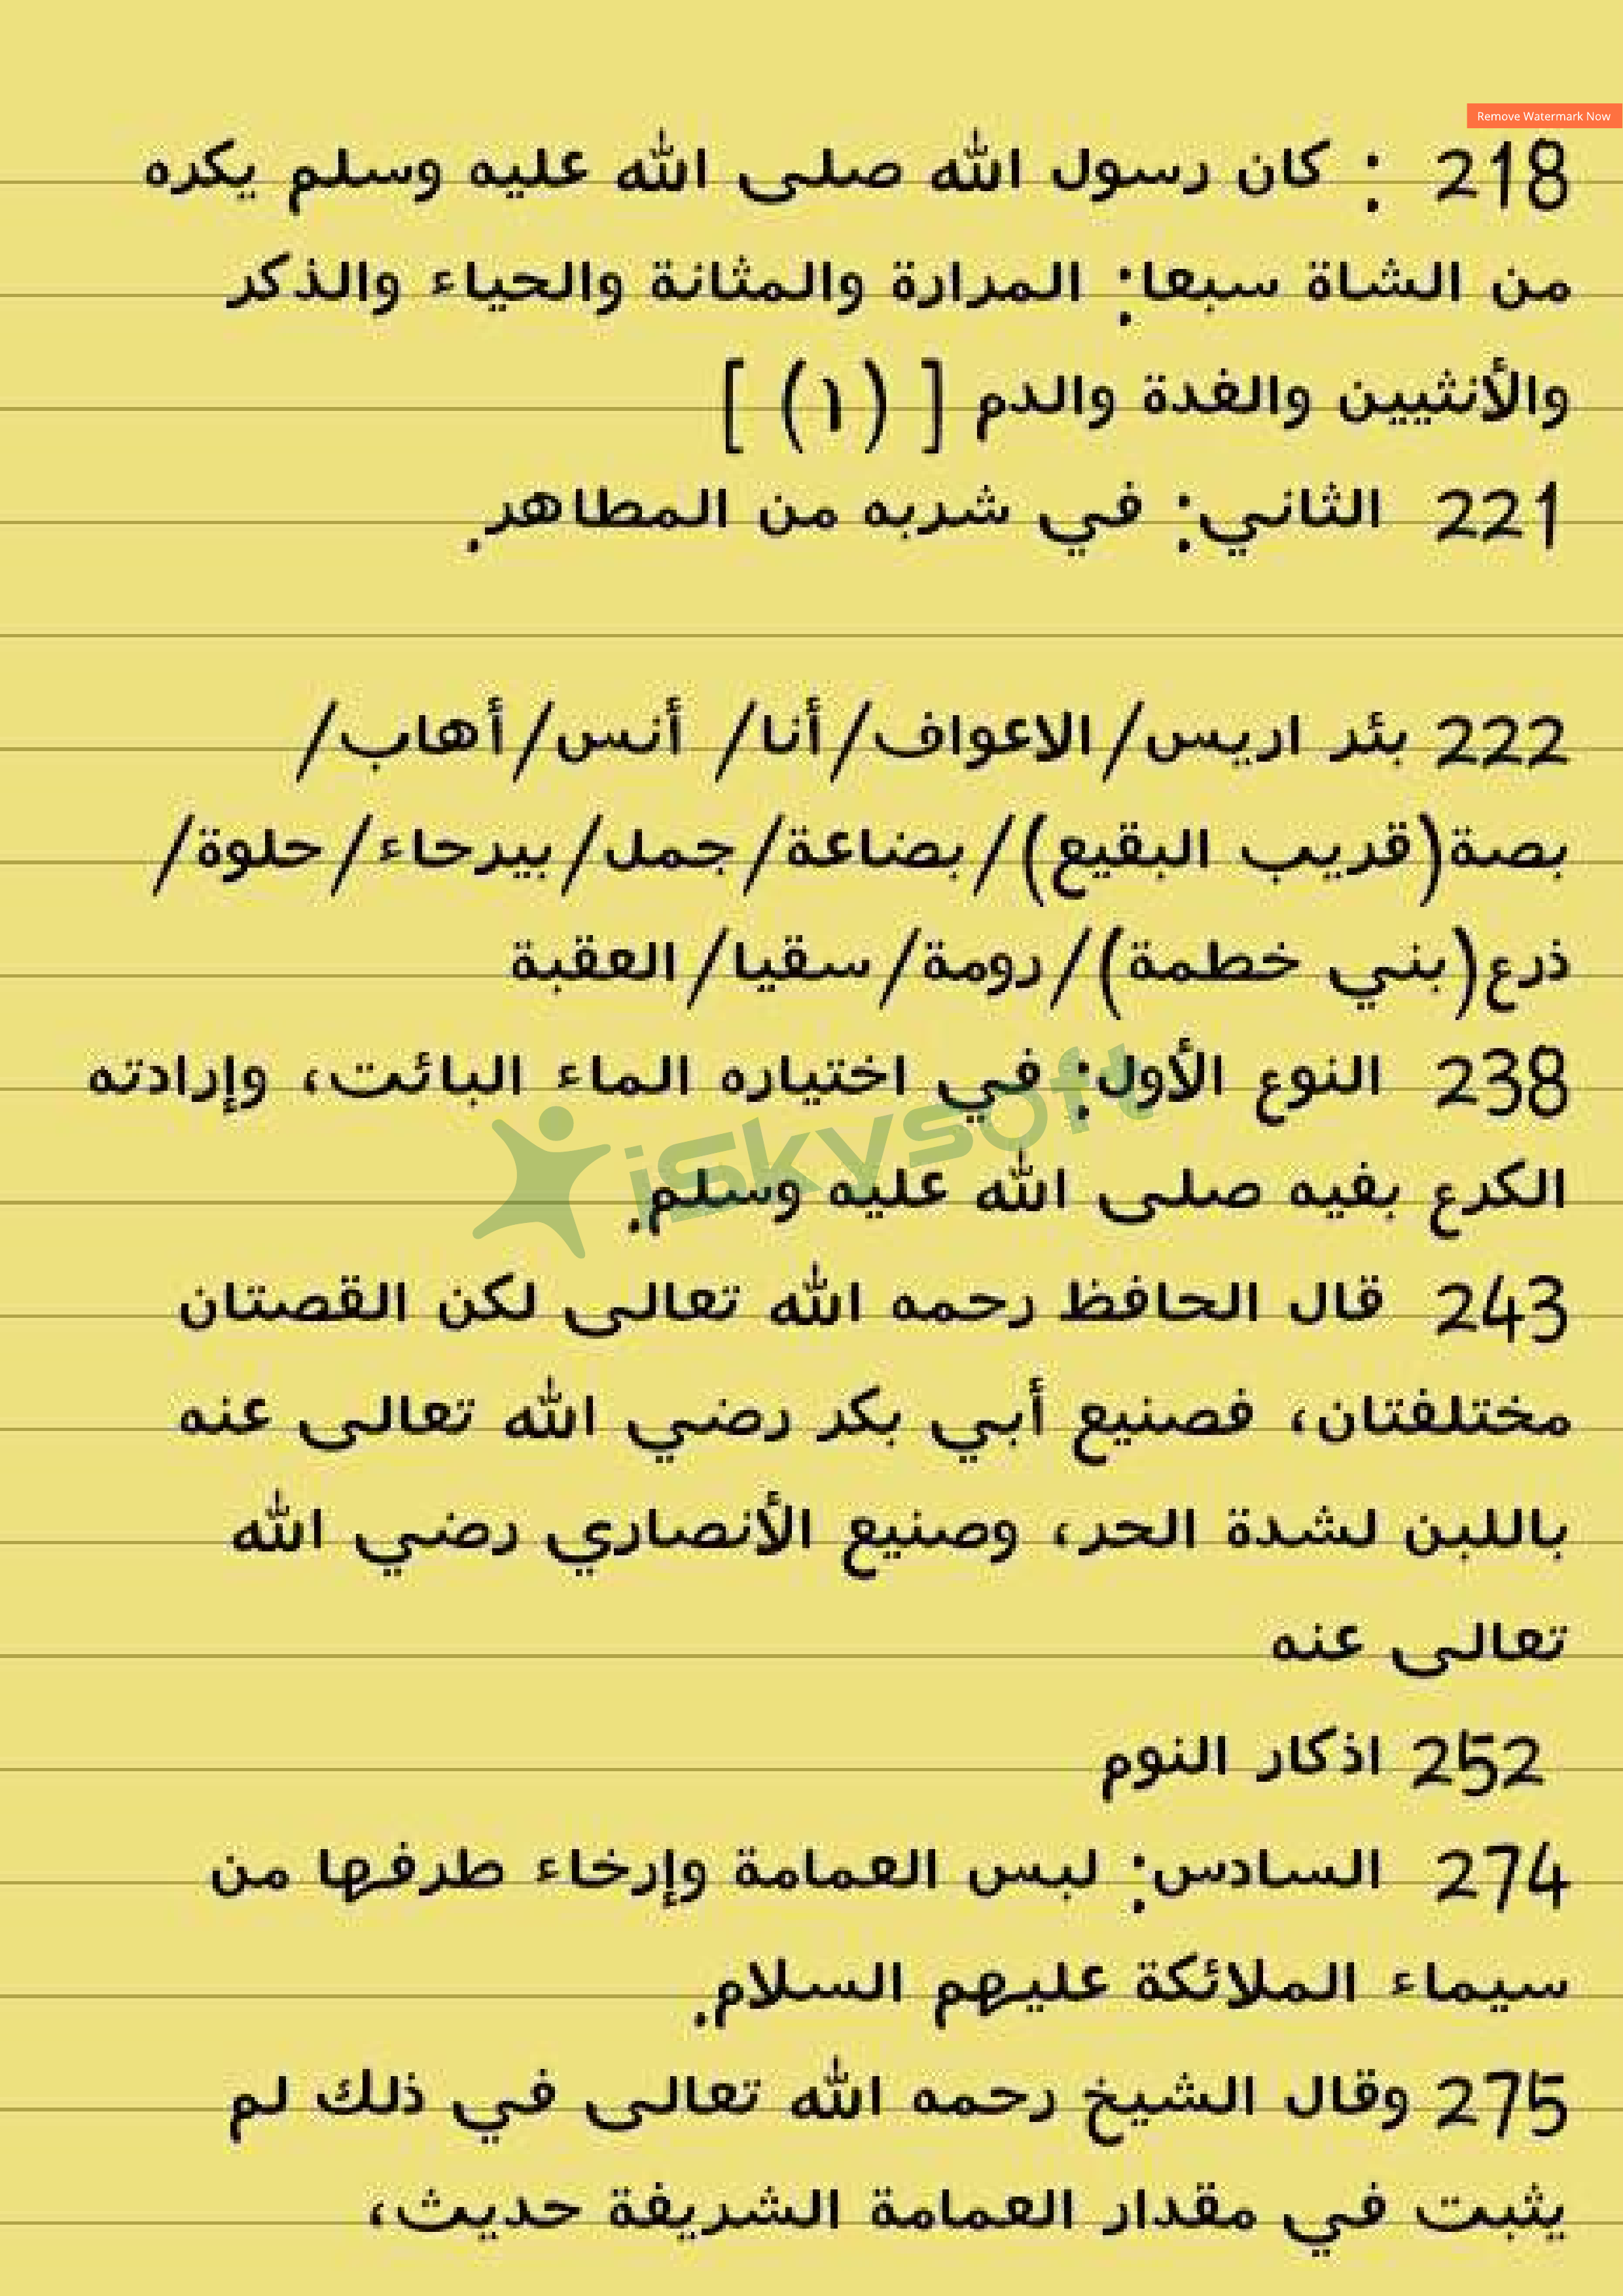 Remove Watermark Now
218 : كان رسول الله صلى الله عليه وسلم يكره
من الشاة سبعا: المرارة والمثانة والحياء والذكر
والأنثيين والغدة والدم [ (١) ]
221 الثاني: في شربه من المطاهر.
222 بئر اريس/الاعواف/أنا/ أنس/أهاب/
بصة(قريب البقيع)/بضاعة/جمل/بيرحاء/حلوة/
ذرع(بني خطمة)/رومة/سقيا/العقبة
238 النوع الأول: في اختياره الماء البائت، وإرادته
الكرع بفيه صلى الله عليه وسلم.
iskysoft
243 قال الحافظ رحمه الله تعالى لكن القصتان
مختلفتان، فصنيع أبي بكر رضي الله تعالى عنه
باللبن لشدة الحر، وصنيع الأنصاري رضي الله
تعالى عنه
252 اذكار النوم
274 السادس: لبس العمامة وإرخاء طرفها من
سيماء الملائكة عليهم السلام.
275 وقال الشيخ رحمه الله تعالى في ذلك لم
يثبت في مقدار العمامة الشريفة حديث،